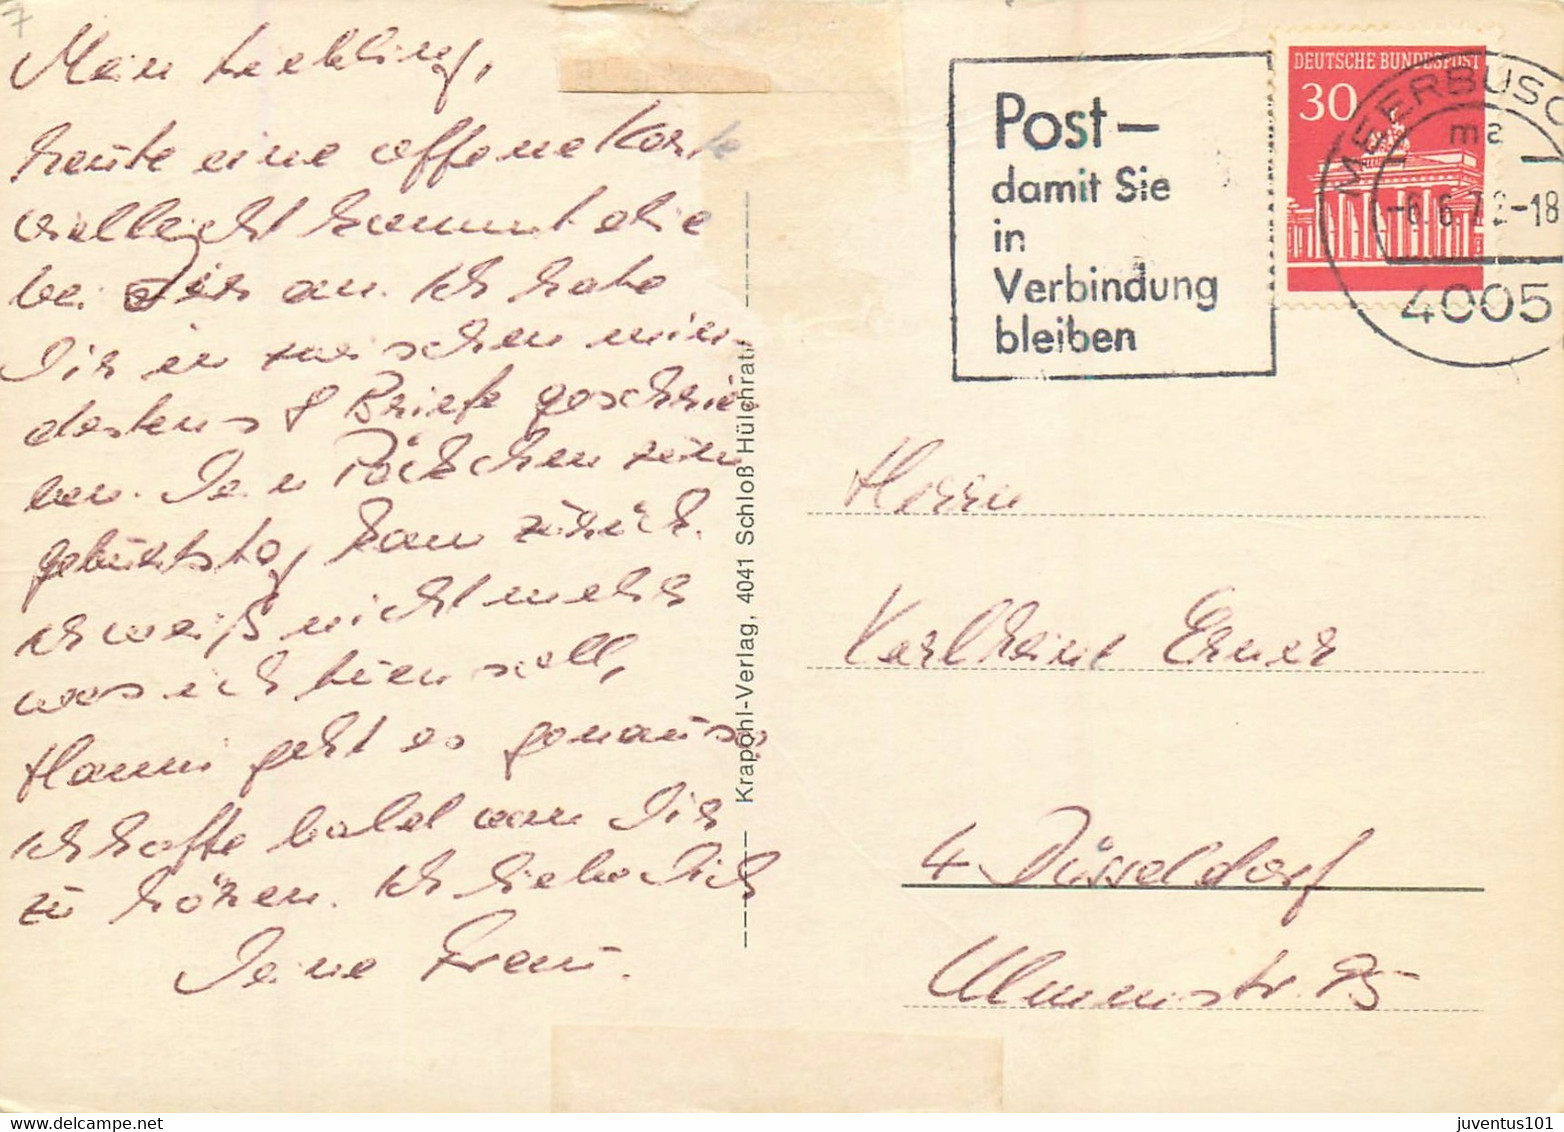 7
Mein Liebling,
heute eine offene Karte
vielleicht kommt die
bei Dir an. Ich habe
Dir in zwischen min-
destens 8 Briefe geschrie
ben. Dein Päckchen zum
Geburtstag kam zurück.
Ich weiß nicht mehr
was ich tuen soll,
Hanni geht es genauso
Ich hoffe bald von Dir
zu hören. Ich liebe Dich
Deine Frau.
Krapohl-Verlag, 4041 Schloß Hülchrath
Post –
damit Sie
in
Verbindung
bleiben
DEUTSCHE BUNDESPOST
30
MEERBUSC
ma
-6.6.72-18
4005
Herrn
Karlheinz
4 Düsseldorf
Ulmenstr. 95
juventus101